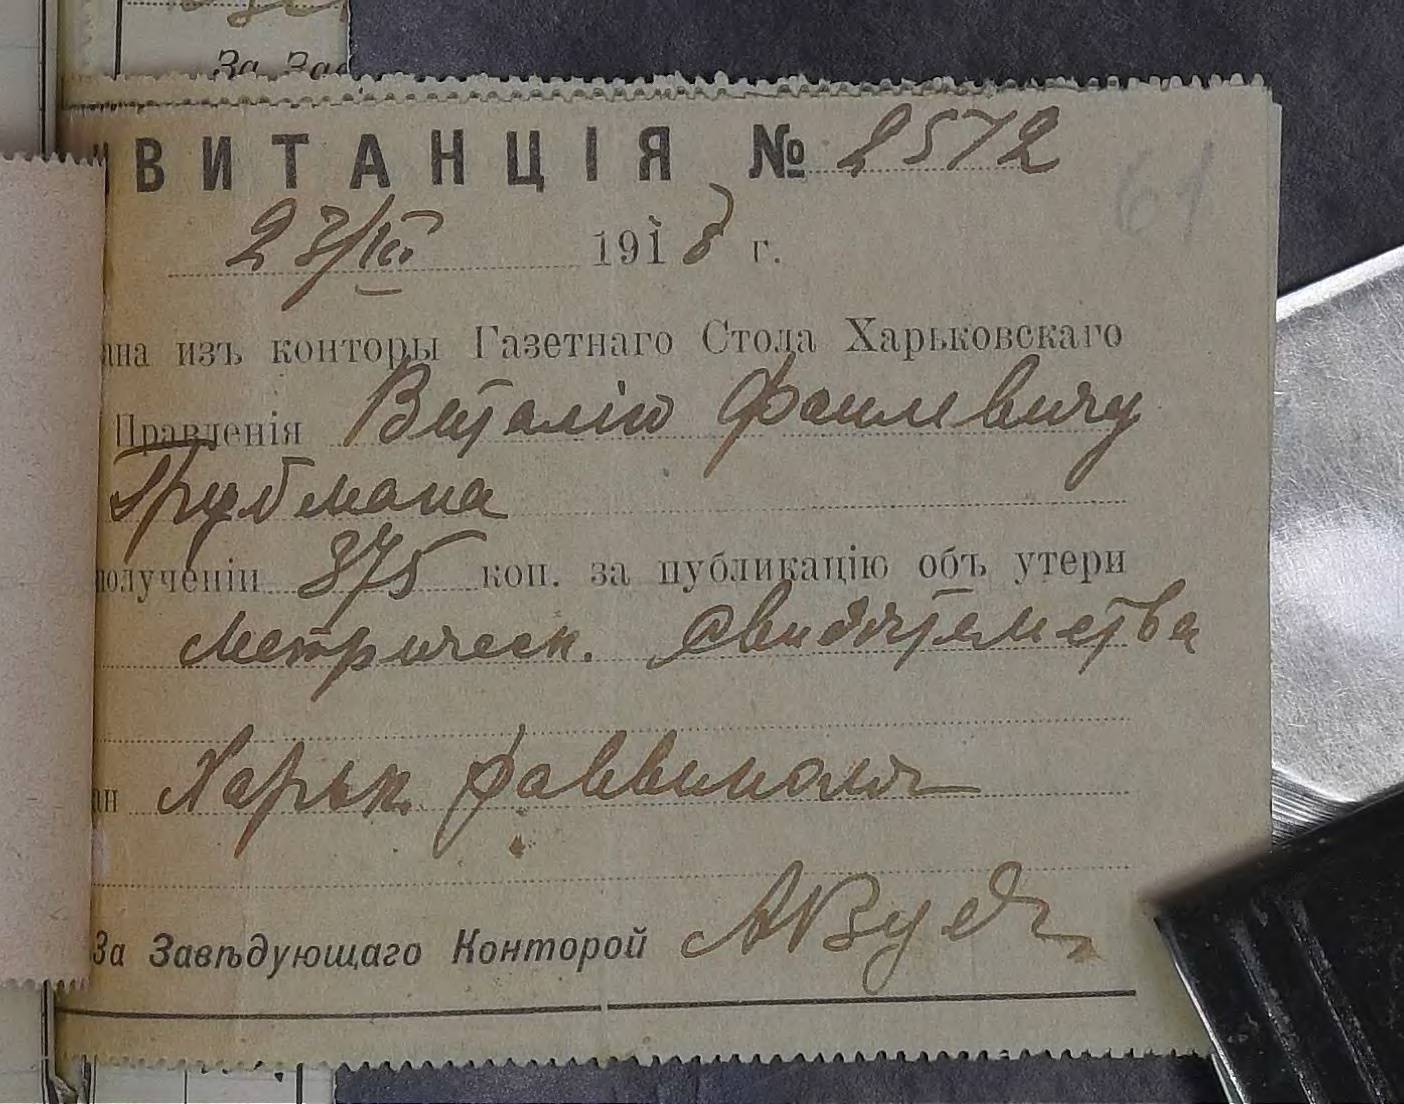 За За
ВИТАНЦІЯ № 2572
61
23/III 1918 г.
ана изъ конторы Газетнаго Стола Харьковскаго
Правленія Виталію Фаилевичу
Грубмана
полученіи 875 коп. за публикацію объ утери
метрическ. свидѣтельства
ан Харьк. раввиномъ
За Завѣдующаго Конторой